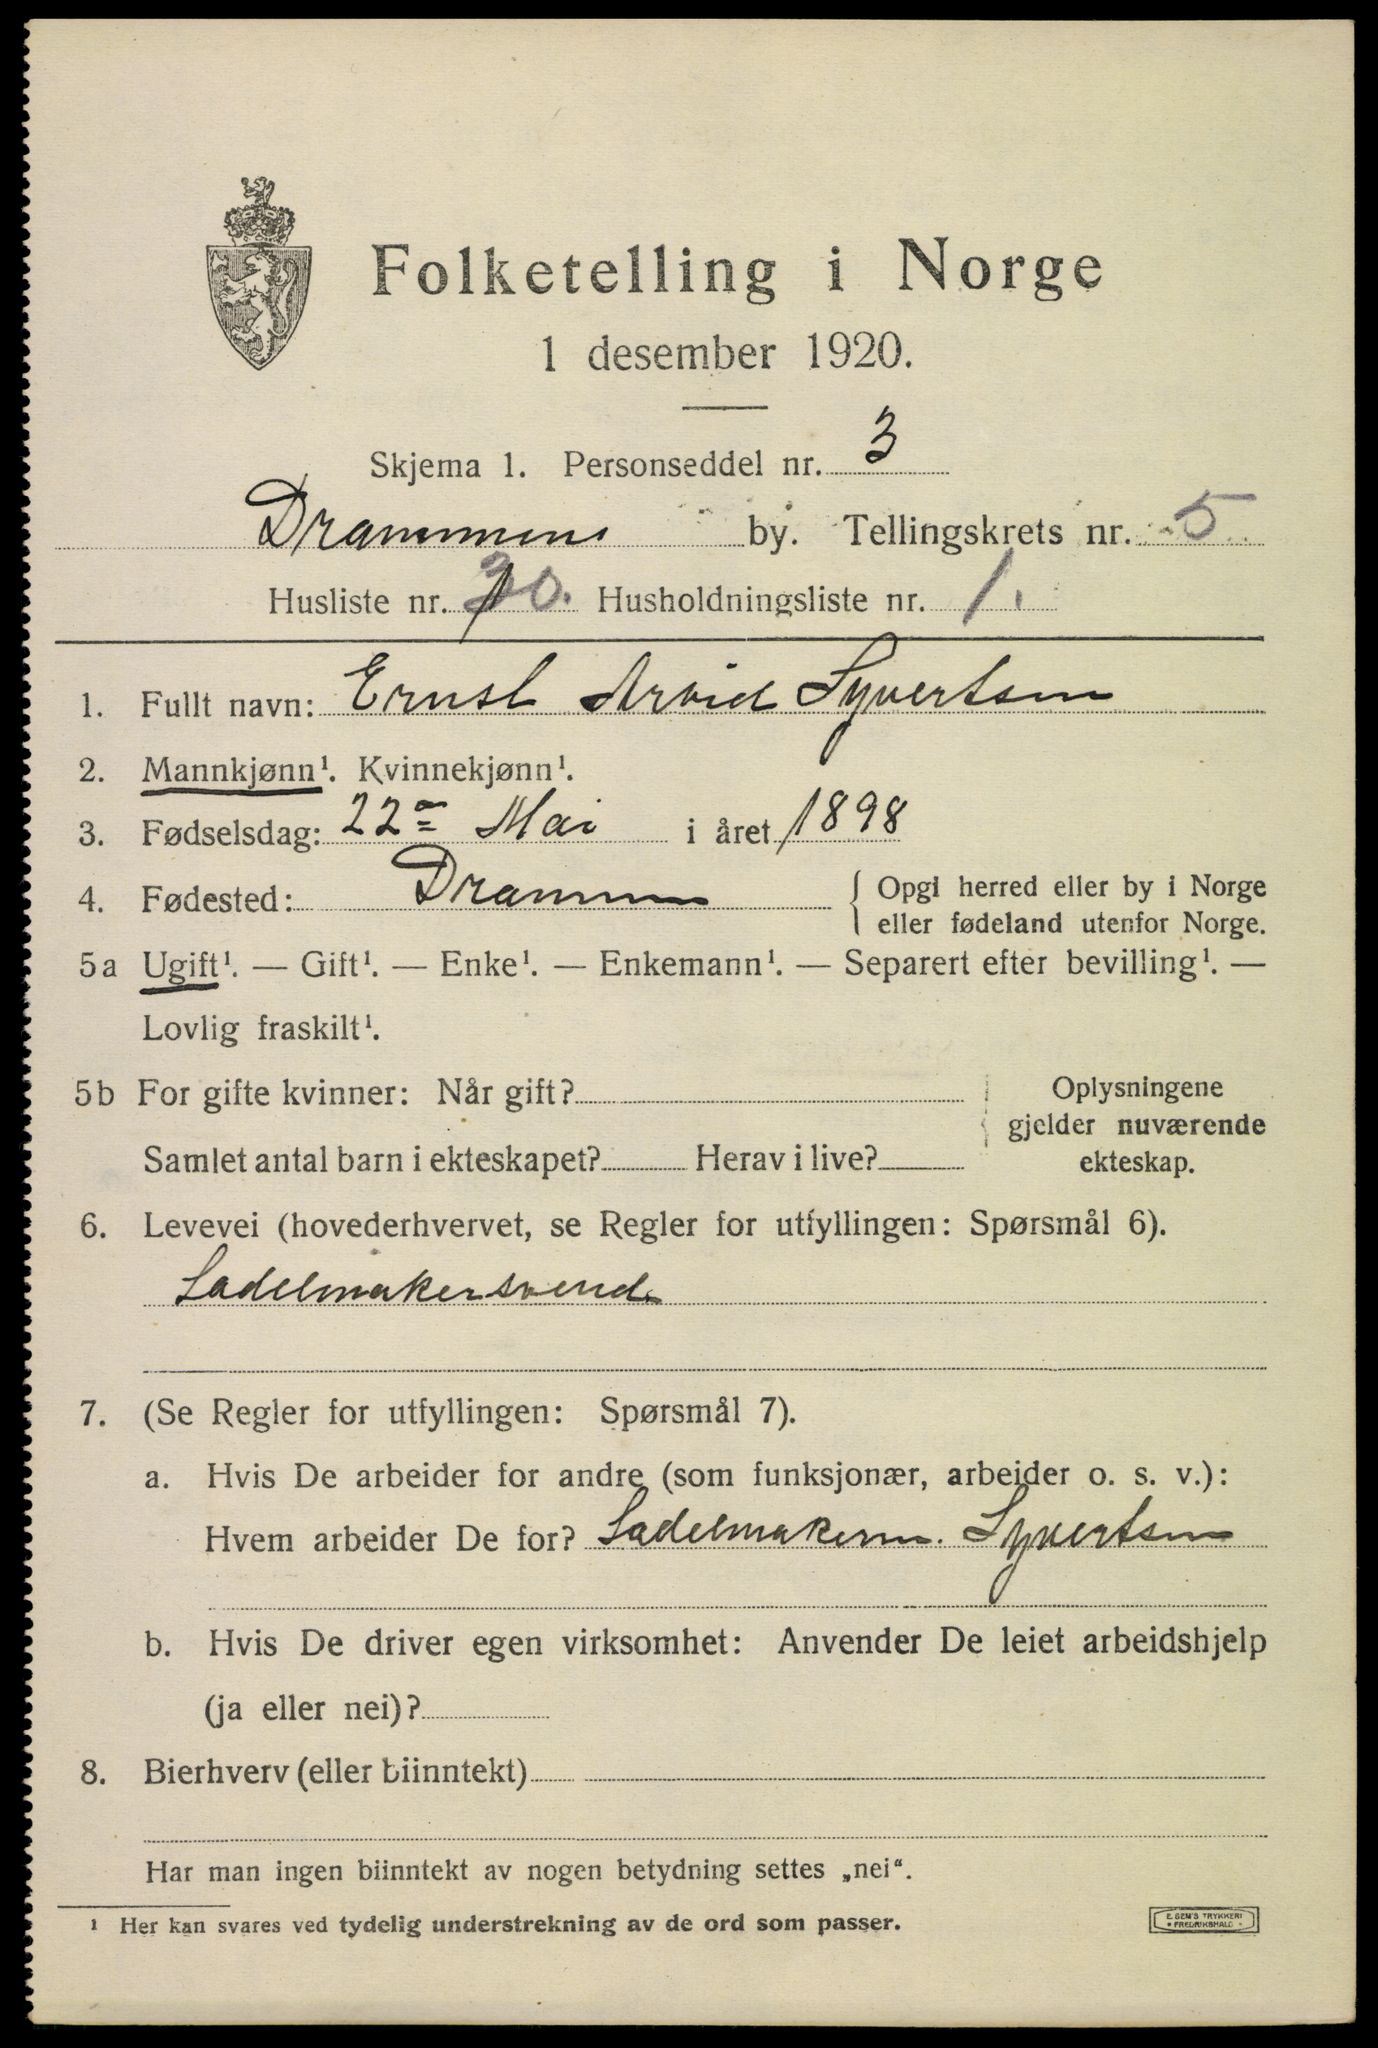 Folketelling i Norge
1 desember 1920.
Skjema 1. Personseddel nr. 3
Drammens by. Tellingskrets nr. 5
Husliste nr. 30. Husholdningsliste nr. 1.
1. Fullt navn: Ernst Arvid Syvertsen
2. Mannkjønn¹. Kvinnekjønn¹.
3. Fødselsdag: 22 Mai i året 1898
4. Fødested: Drammen { Opgi herred eller by i Norge
eller fødeland utenfor Norge.
5a Ugift¹. — Gift¹. — Enke¹. — Enkemann¹. — Separert efter bevilling¹. —
Lovlig fraskilt¹.
5b For gifte kvinner: Når gift? Oplysningene
gjelder nuværende
Samlet antal barn i ekteskapet? Herav i live? ekteskap.
6. Levevei (hovederhvervet, se Regler for utfyllingen: Spørsmål 6).
Sadelmakersvend.
7. (Se Regler for utfyllingen: Spørsmål 7).
a. Hvis De arbeider for andre (som funksjonær, arbeider o. s. v.):
Hvem arbeider De for? Sadelmakerm. Syvertsen
b. Hvis De driver egen virksomhet: Anvender De leiet arbeidshjelp
(ja eller nei)?
8. Bierhverv (eller biinntekt)
Har man ingen biinntekt av nogen betydning settes „nei“.
¹ Her kan svares ved tydelig understrekning av de ord som passer.
E. SEM'S TRYKKERI
• FREDRIKSHALD •